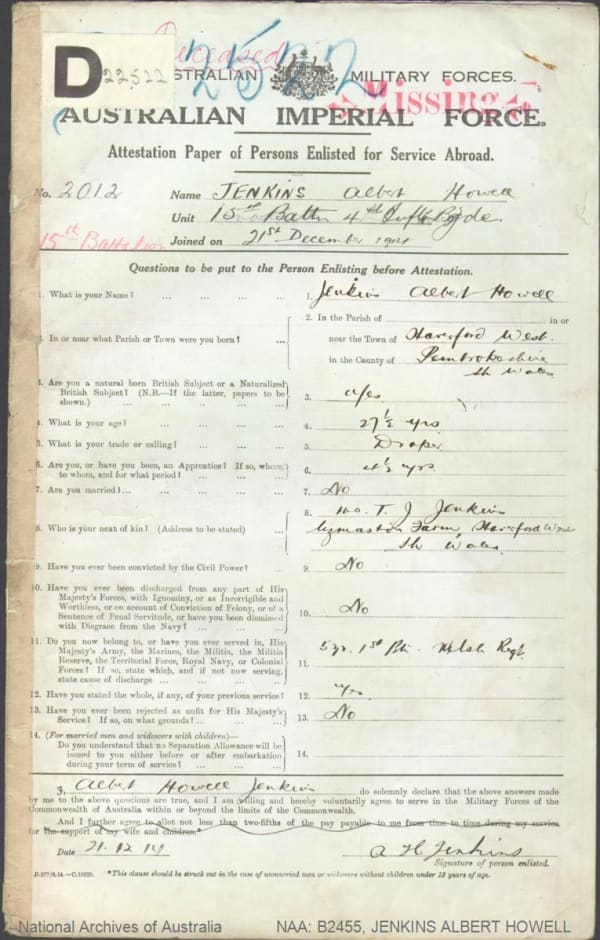 Deceased
D
22522
2522
AUSTRALIAN MILITARY FORCES.
Missing
AUSTRALIAN IMPERIAL FORCE.
Attestation Paper of Persons Enlisted for Service Abroad.
No. 2012 Name JENKINS Albert Howell
Unit 15th Battn 4th Inf Bgde.
15th Battalion Joined on 21st December 1914
Questions to be put to the Person Enlisting before Attestation.
1. What is your Name? ... ... ... ... 1. Jenkins Albert Howell
2. In or near what Parish or Town were you born? ... 2. In the Parish of in or
near the Town of Haverford West.
in the County of Pembrokeshire
Sth Wales
3. Are you a natural born British Subject or a Naturalized
British Subject? (N.B.—If the latter, papers to be
shown.) ... ... ... ... ... 3. Yes
4. What is your age? ... ... ... ... 4. 27½ yrs
5. What is your trade or calling? ... ... ... 5. Draper
6. Are you, or have you been, an Apprentice? If so, where,
to whom, and for what period? ... ... ... 6. yrs
7. Are you married?... ... ... ... ... 7. No
8. Who is your next of kin? (Address to be stated) ... 8. T. J Jenkins
Farm, Haverford West
Sth Wales
9. Have you ever been convicted by the Civil Power? ... 9. No
10. Have you ever been discharged from any part of His
Majesty's Forces, with Ignominy, or as Incorrigible and
Worthless, or on account of Conviction of Felony, or of a
Sentence of Penal Servitude, or have you been dismissed
with Disgrace from the Navy? ... ... ... 10. No
11. Do you now belong to, or have you ever served in, His
Majesty's Army, the Marines, the Militia, the Militia
Reserve, the Territorial Force, Royal Navy, or Colonial
Forces? If so, state which, and if not now serving,
state cause of discharge ... ... ... ... 11. 5yr. 1st Bn. Welsh Regt.
12. Have you stated the whole, if any, of your previous service? 12. Yes
13. Have you ever been rejected as unfit for His Majesty's
Service? If so, on what grounds? ... ... ... 13. No
14. (For married men and widowers with children)—
Do you understand that no Separation Allowance will be
issued to you either before or after embarkation
during your term of service? ... ... ... 14.
I, Albert Howell Jenkins do solemnly declare that the above answers made
by me to the above questions are true, and I am willing and hereby voluntarily agree to serve in the Military Forces of the
Commonwealth of Australia within or beyond the limits of the Commonwealth.
And I further agree to allot not less than two-fifths of the pay payable to me from time to time during my service
for the support of my wife and children.*
Date 21.12.14 A H Jenkins
Signature of person enlisted.
*This clause should be struck out in the case of unmarried men or widowers without children under 18 years of age.
National Archives of Australia NAA: B2455, JENKINS ALBERT HOWELL